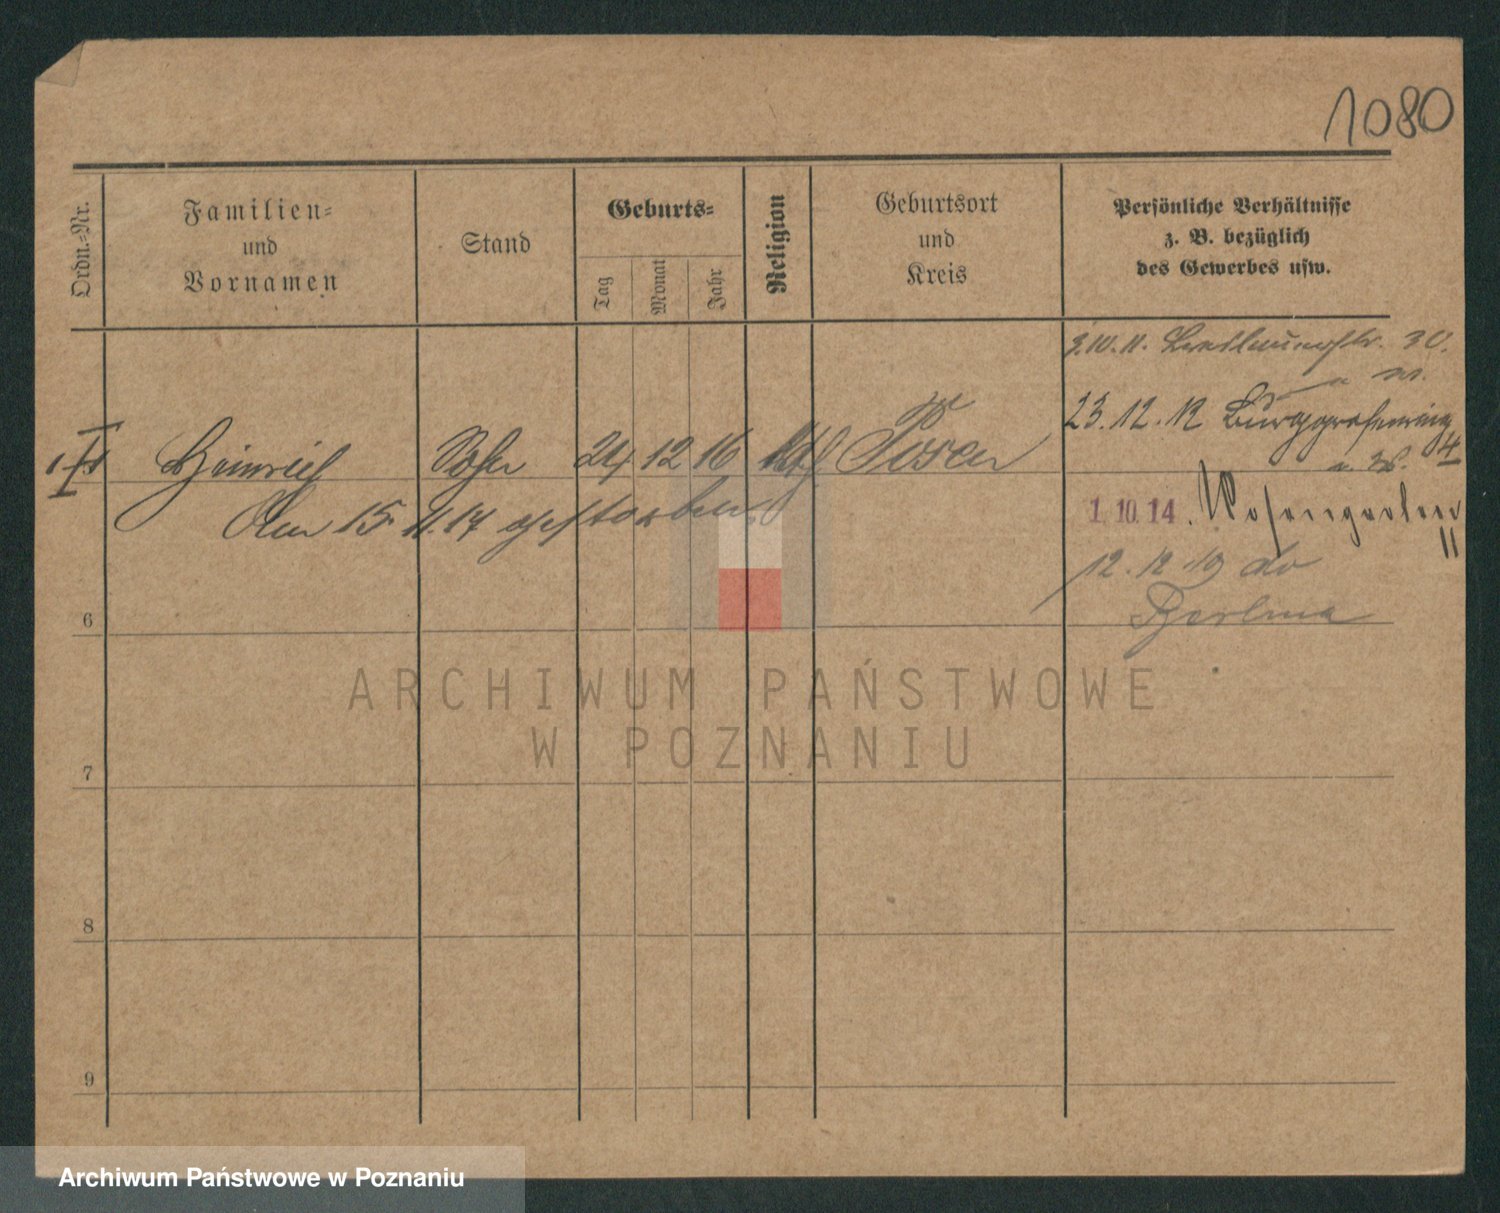 1080
Ordn.=Nr.
Familien=
und
Vornamen
Stand
Geburts=
Tag
Monat
Jahr
Religion
Geburtsort
und
Kreis
Persönliche Verhältnisse
z. B. bezüglich
des Gewerbes usw.
3.10.11. 30.
23.12.12 Burggrafenring 4
Heinrich Sohn 24 12 16 Posen
Am 15. 11. 17 gestorben.
1. 10. 14.
12. 12. 19
6
ARCHIWUM PAŃSTWOWE
W POZNANIU
7
8
9
Archiwum Państwowe w Poznaniu